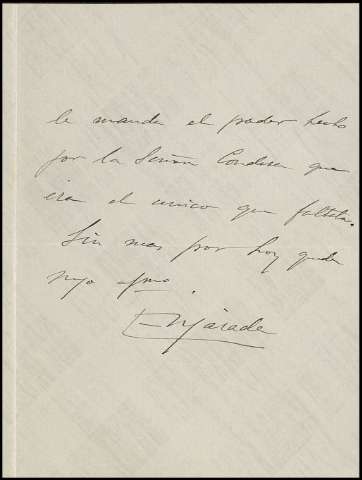 le manda el poder hecho
por la Señora Condesa que
era el unico que faltaba.
Sin mas por hoy queda
suyo afmo.